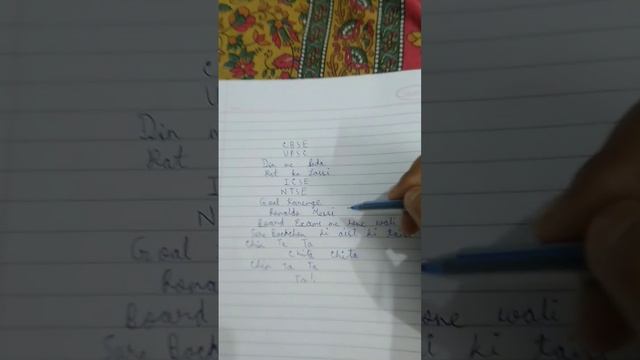 CBSE
UPSC
Din me
Rat ko Lassi
ICSE
NTSE
Goal Karenge
Ronaldo Messi
Board Exams me hone wali
Sare Bachchon ki aisi ki taisi
Chin Ta Ta
Chita Chita
Chin Ta Ta
Ta!